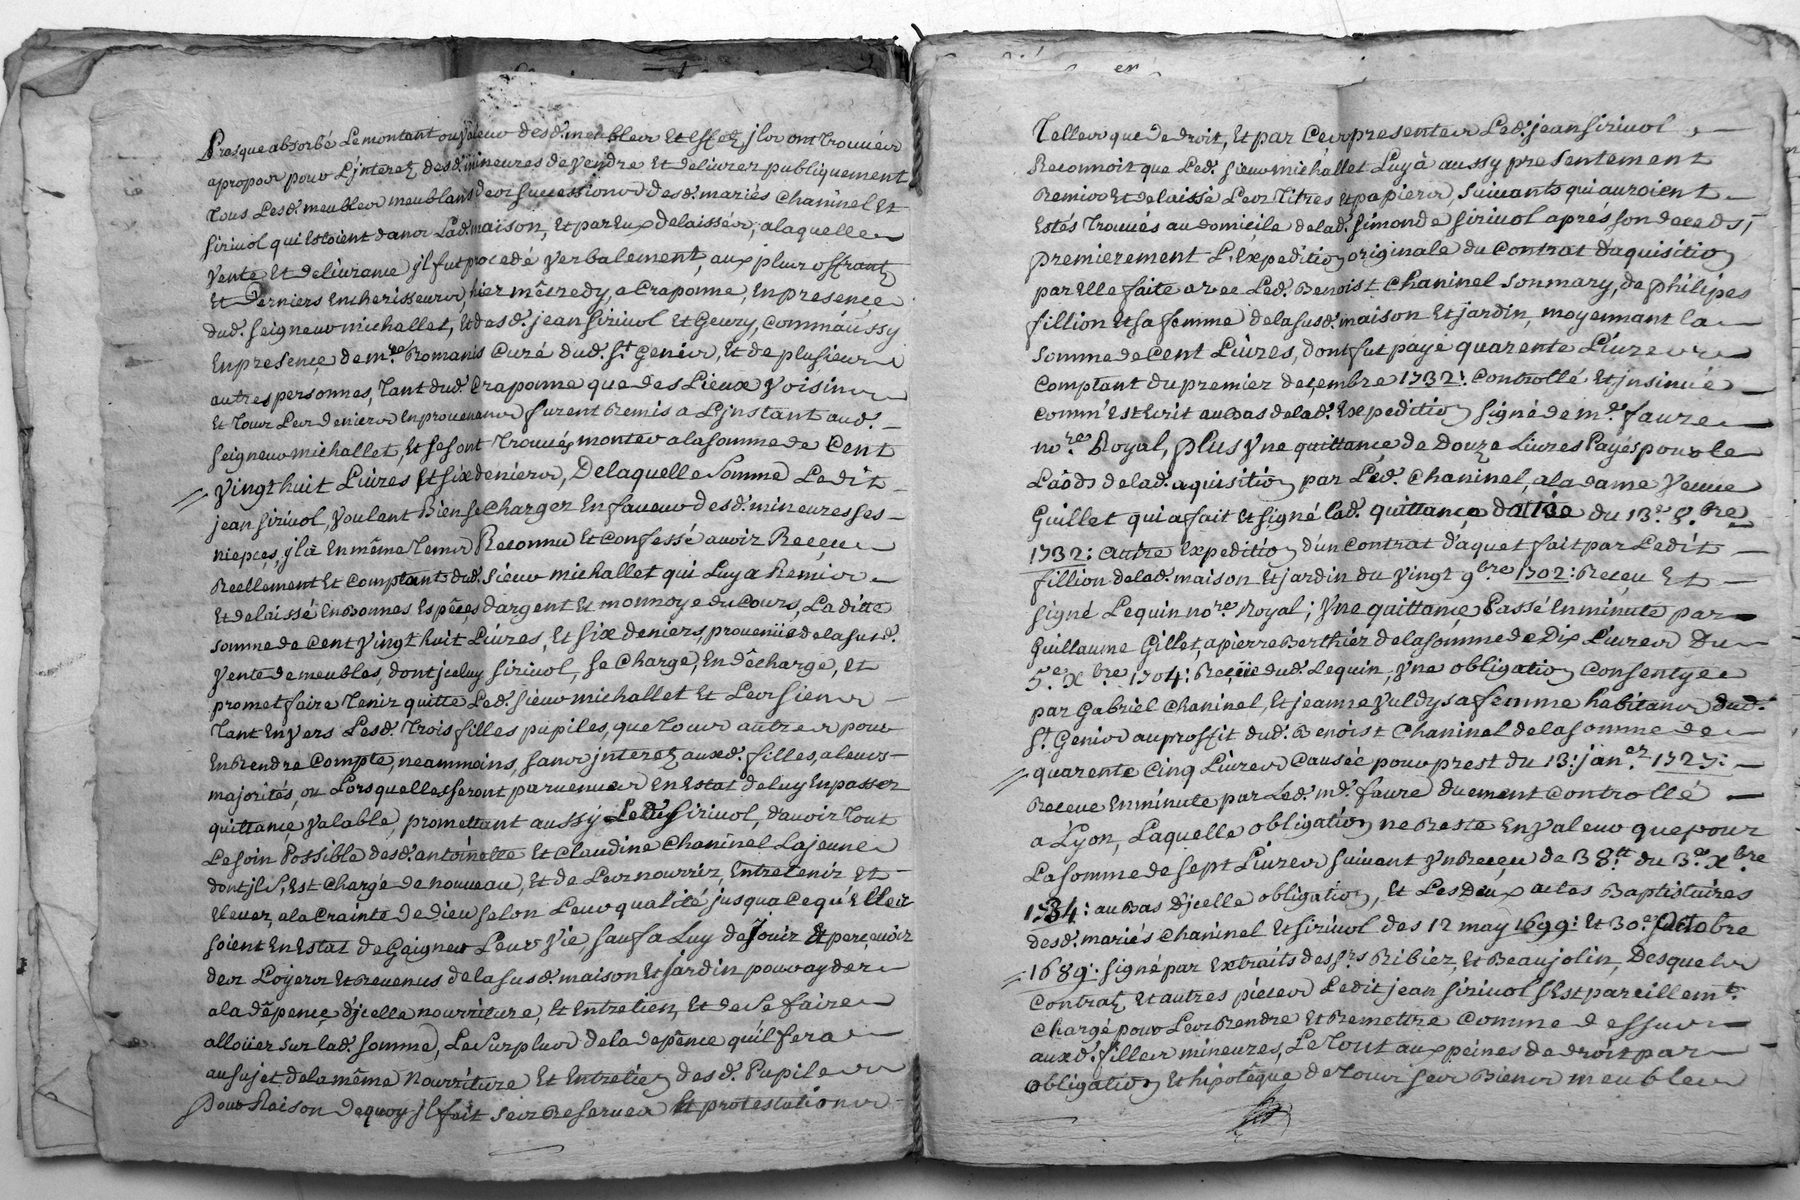 en
Presque absorbé Le montant ou Valeur desd. meubles Et effetz jlz ont Trouvés
a propos pour L'jnteretz desd. mineures de vendre Et delivrer publiquement
Tous Lesd. meubles meublans de ors successions desd. mariés Chaninel Et
Sirivol qui Estoient dans Lad. maison, Et par Eux delaissés, a laquelle
Vente Et delivrance jl fut procedé verbalement, aux plus offrantz
Et Derniers Encherisseurs, hier mêcredy, a Craponne, En presence
dud. Seigneur michallet, Et desd. jean Sirivol Et Geury, comm'aussy
En presence de mre Romanis Curé dud. St Genis, Et de plusieurs
autres personnes, Tant dud. Craponne que des Lieux Voisins
Et Tous Les deniers En provenans furent Remis a L'jnstant aud.
Seigneur michallet, Et se sont Trouvés monter a la somme de Cent
Vingt huit Livres Et six deniers, De laquelle Somme Ledit
jean Sirivol, Voulent Bien se Charger En faveur desd. mineures ses
niepces, jl a En même Tems Reconnu Et Confessé avoir Reçeu
Reellement Et Comptant dud. Sieur michallet qui Luy a Remis
Et delaissé En Bonnes Espêces d'argent Et monnoye du Cours, La ditte
somme de Cent Vingt huit Livres, Et six deniers, provenüe de la susd.
Vente de meubles, dont jceluy Sirivol, se Charge, En dêcharge, Et
promet faire Tenir quitte Led. Sieur michallet Et Les siens
Tant Envers Lesd. Trois filles pupiles, que Tous autres pour
En Rendre Compte, neammoins, sans jnteretz auxd. filles, a leurs
majorités, ou Lorsquelles seront parvenues En Estat de luy En passer
quittance valable, promettant aussy Led. Sirivol, d'avoir Tout
Le soin Possible desd. antoinette Et Claudine Chaninel La jeune
dont jl s'Est Chargé de nouveau, Et de Les nourrir, Entretenir Et
Elever, a la Crainte de Dieu selon Leur qualité jusqua ce qu'Elles
soient En Estat de Gaigner Leur Vie sauf a Luy de Jouir Et percevoir
des Loyers Et Revenus de la susd. maison Et Jardin pour ayder
a la dêpence d'jcelle nourriture, Et Entretien, Et de Se faire
alloüer sur lad. somme, Le Surplus de la depênce qu'il fera
au sujet de la même Nourriture Et Entretien desd. Pupiles
Pour Raison de quoy jl fait ses Reserves Et protestations
Telles que de droit, Et par Ces presentes Led. jean Sirivol
Reconnoit que Led. Sieur michallet Luy a aussy presentement
Remis Et delaissé Les Titres Et papiers, suivants qui auroient
Estés Trouvés au domicile de lad. Simonde Sirivol aprés son deceds,
premierement L'Expedition originale du Contrat d'aquisition
par Elle faite avec Led. Benoist Chaninel son mary, de philipes
fillion Et sa femme de la susd. maison Et jardin, moyennant la
somme de Cent Livres, dont fut payé quarente Livres
Comptant du premier decembre 1732: Controllé Et jnsinué
comm'Est Ecrit au Bas de lad. Expedition signé de me faure
nore Royal, plus Vne quittance de Douze Livres Payés pour le
Laods de lad. aquisition par Led. Chaninel, a la dame Veuve
Guillet qui a fait Et signé lad. quittance dattée du 13e 8.bre
1732: autre Expedition d'un Contrat d'aquet fait par Ledit
fillion de lad. maison Et jardin du vingt 9bre 1702: Reçeu Et
signé Lequin nore Royal; Vne quittance Passé En minute par
Guillaume Gillet, a pierre Berthier de la somme de Dix Livres Du
5e Xbre 1704: Reçeüe dud. Lequin, Vne obligation Consentyee
par Gabriel Chaninel, Et jeanne Vuldy sa femme habitans dud.
St. Genis au proffit dud. Benoist Chaninel de la somme de
quarente Cinq Livres Causée pour prest du 13: janer 1727:
Receue En minute par Led. me faure duement Controllé
a Lyon, Laquelle obligation ne Reste En Valeur que pour
La somme de sept Livres suivant Vn Reçeu de 38tt du 3e Xbre
1734: au Bas d'jcelle obligation, Et Les Deux actes Baptistaires
desd. mariés Chaninel Et Sirivol des 12 may 1699: Et 30e Octobre
1689: signé par Extraits des srs Ribier, Et Beaujolin, Desquels
Contratz Et autres pièces Ledit jean Sirivol s'Est pareillemt
Chargé pour Les Rendre Et Remettre Comme dessus
auxd. filles mineures, Le Tout aux peines de droit par
obligation Et hipotêque de Tous ses Biens meubles